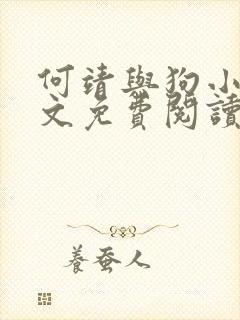 何靖與狗小
文免費閱讀
養蚕人